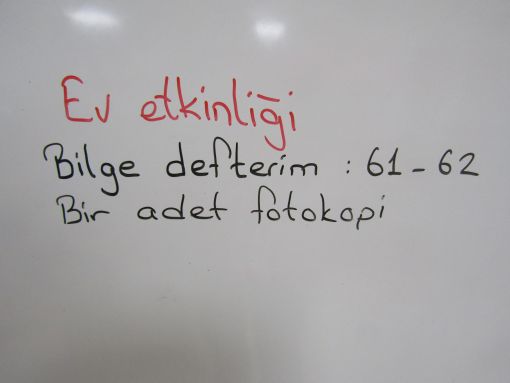 Ev etkinliği
Bilge defterim : 61-62
Bir adet fotokopi